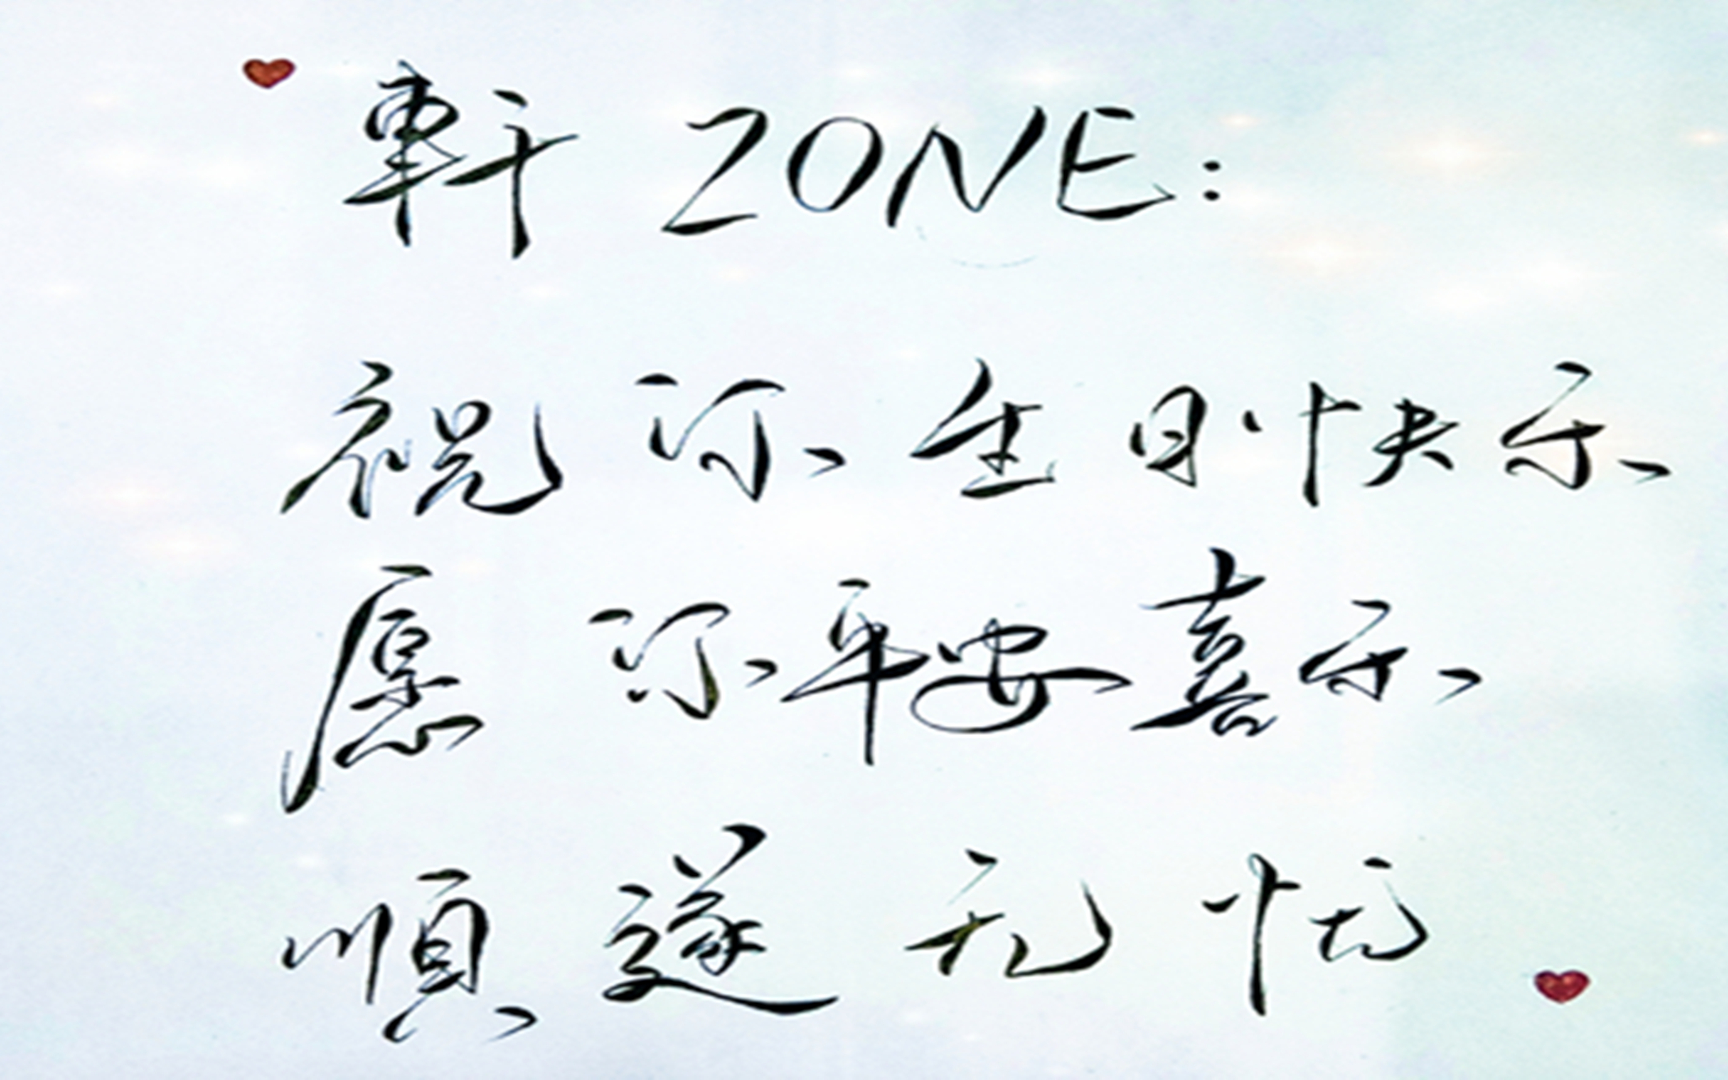 軒 ZONE:
祝你生日快乐
愿你平安喜乐
順遂无忧